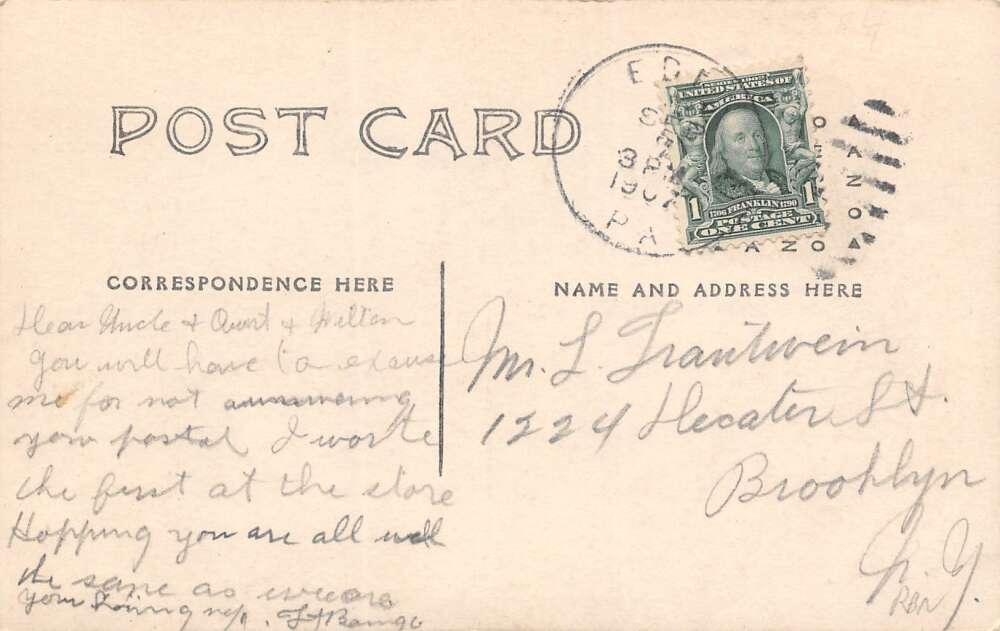 POST CARD
EDE
SEP
3 PM
1907
PA
SERIES 1902
UNITED STATES OF
AMERICA
1
1706 FRANKLIN 1790
POSTAGE
ONE CENT
CORRESPONDENCE HERE
Dear Uncle + Aunt + Milton
You will have to excuse
me for not answering
your postal I worte
the first at the store
Hopping you are all well
the same as we are
your loving
NAME AND ADDRESS HERE
Mr. L. Trautwein
1224 Hecater St.
Brooklyn
N. Y.